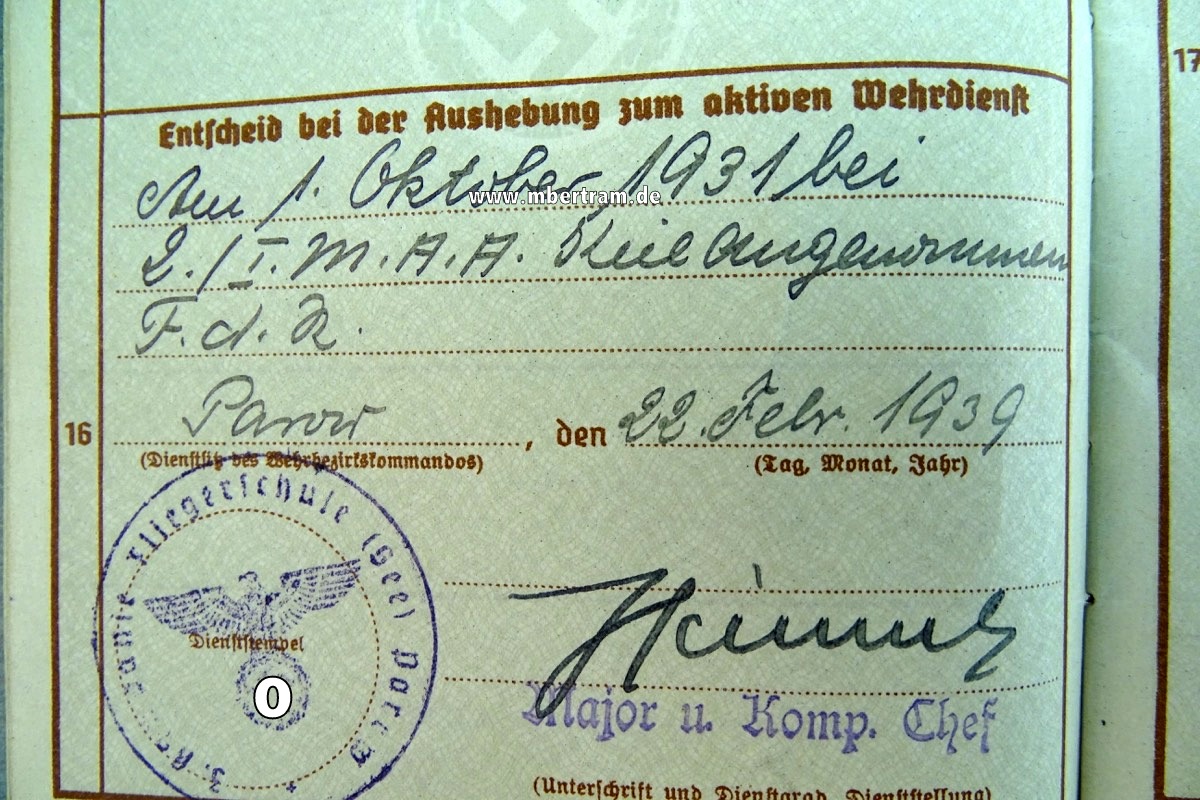 17
Entscheid bei der Aushebung zum aktiven Wehrdienst
Am 1. Oktober 1931 bei
www.mbertram.de
2./I. M.A.A. Kiel Angenommen
F.d.R.
16
Parow, den 22. Febr. 1939
(Dienstsitz des Wehrbezirkskommandos) (Tag, Monat, Jahr)
3. Kompanie Fliegerschule (See) Parow
Dienststempel
0
Major u. Komp. Chef
(Unterschrift und Dienstgrad, Dienststellung)